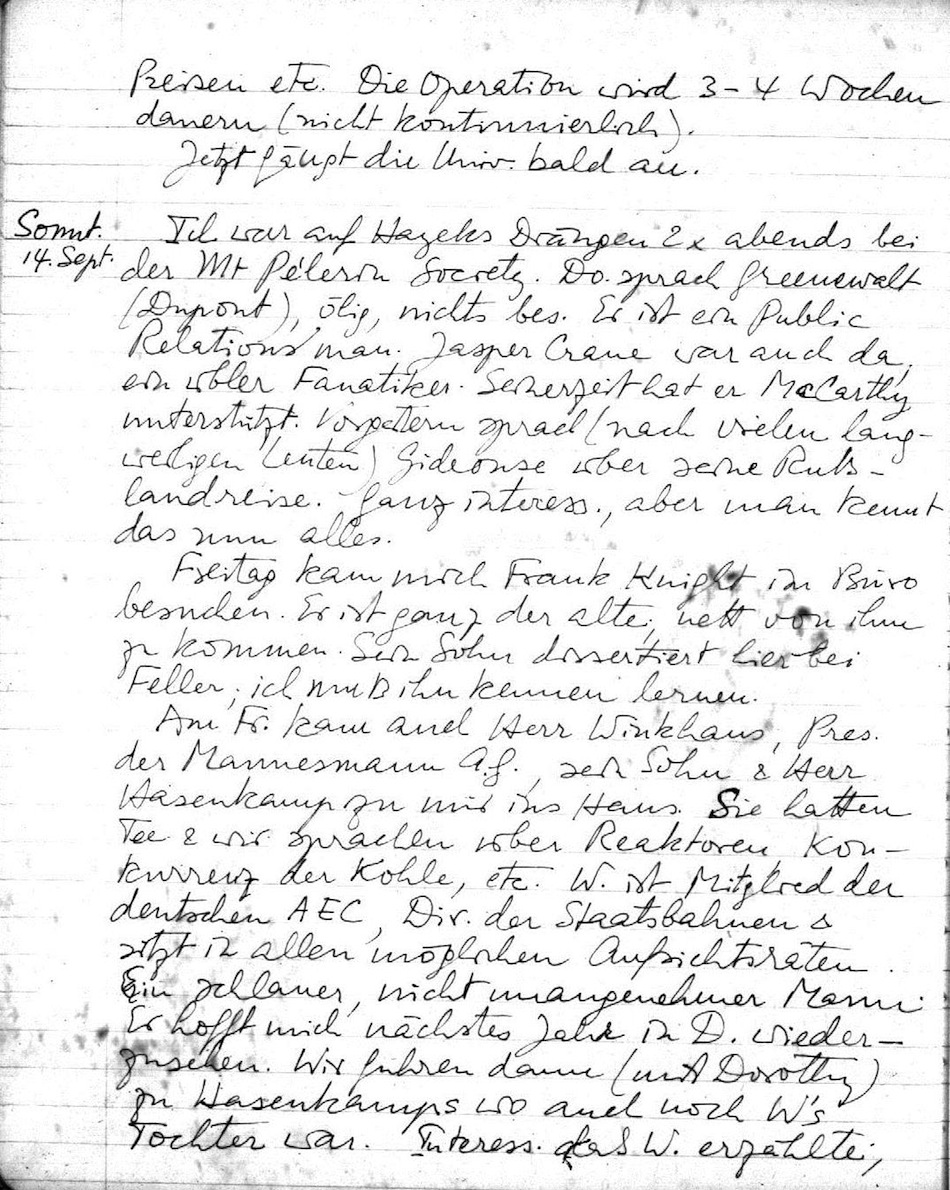 Reisen etc. Die Operation wird 3-4 Wochen
dauern (nicht kontinuierlich).
Jetzt fängt die Univ. bald an.
Sonnt.
14. Sept.
Ich war auf Hayeks Drängen 2x abends bei
der Mt Pélerin Society. Do. sprach Greenewalt
(Dupont), ölig, nichts bes. Er ist ein Public
Relations man. Jasper Crane war auch da,
ein übler Fanatiker. Seinerzeit hat er McCarthy
unterstützt. Vorgestern sprach (nach vielen lang-
weiligen Leuten) Gideonse über seine Ruß-
landreise. Ganz interess., aber man kennt
das nun alles.
Freitag kam mich Frank Knight im Büro
besuchen. Er ist ganz der alte; nett von ihm
zu kommen. Sein Sohn dissertiert hier bei
Feller; ich muß ihn kennen lernen.
Am Fr. kam auch Herr Winkhaus, Pres.
der Mannesmann A.G., sein Sohn & Herr
Hasenkamp zu mir ins Haus. Sie hatten
Tee & wir sprachen über Reaktoren, Kon-
kurrenz der Kohle, etc. W. ist Mitglied der
deutschen AEC, Dir. der Staatsbahnen &
sitzt in allen möglichen Aufsichtsräten.
Ein schlauer, nicht unangenehmer Mann.
Er hofft mich nächstes Jahr in D. wieder-
zusehen. Wir fuhren dann (mit Dorothy)
zu Hasenkamps wo auch noch W's
Tochter war. Interess. daß W. erzählte,